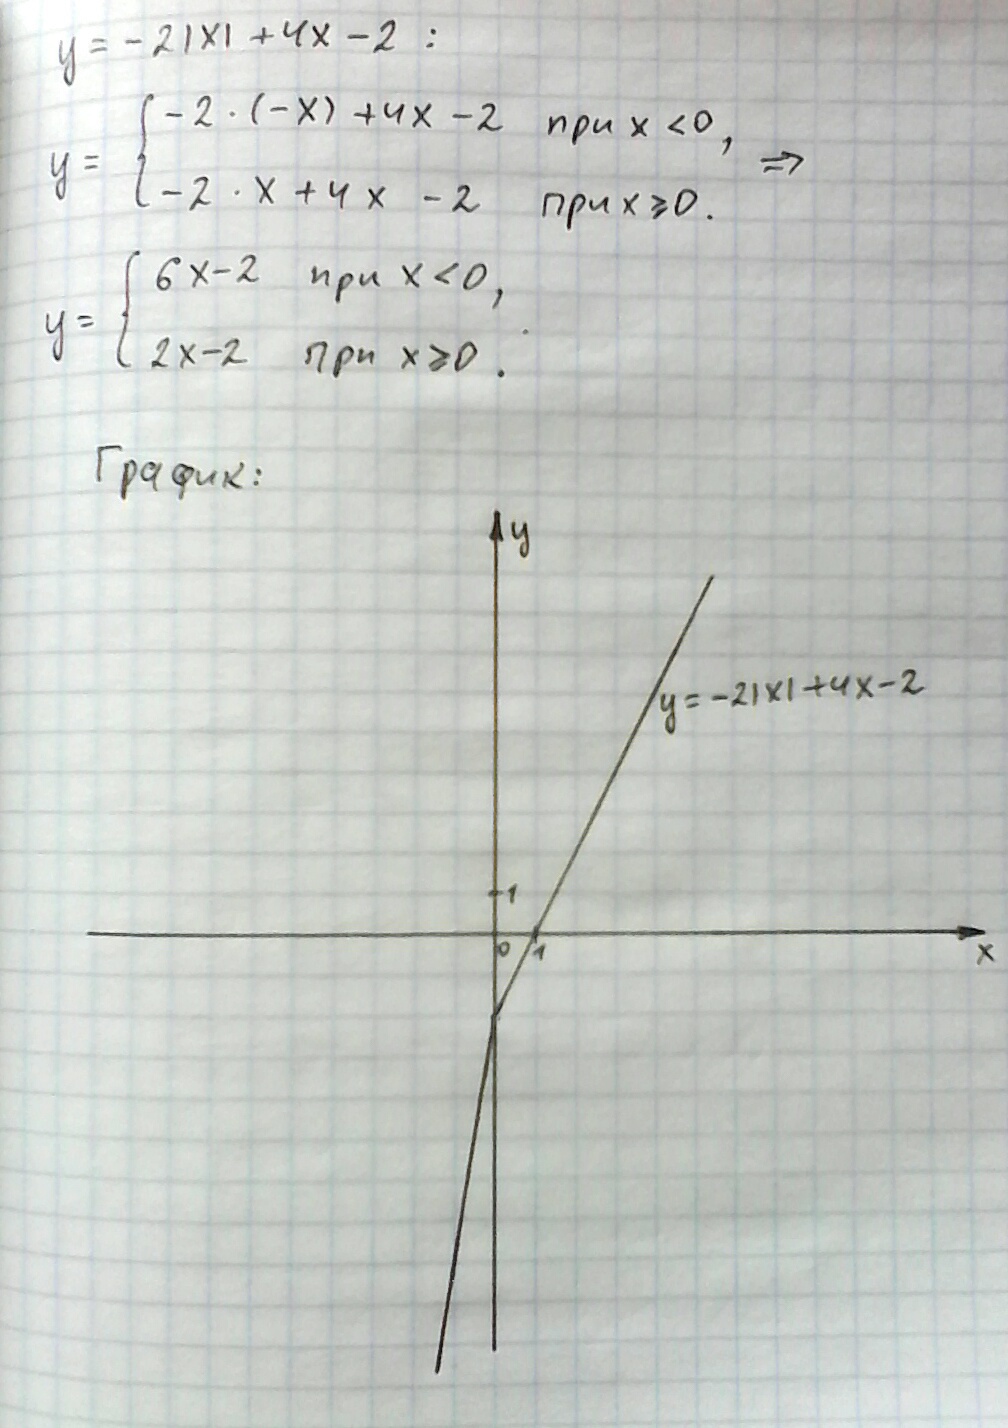 y = -2|x| + 4x - 2 :
y = { -2 · (-x) + 4x - 2 при x < 0, ⇒
-2 · x + 4x - 2 при x ⩾ 0.
y = { 6x - 2 при x < 0,
2x - 2 при x ⩾ 0.
График:
y
y = -2|x| + 4x - 2
1
0 1
x